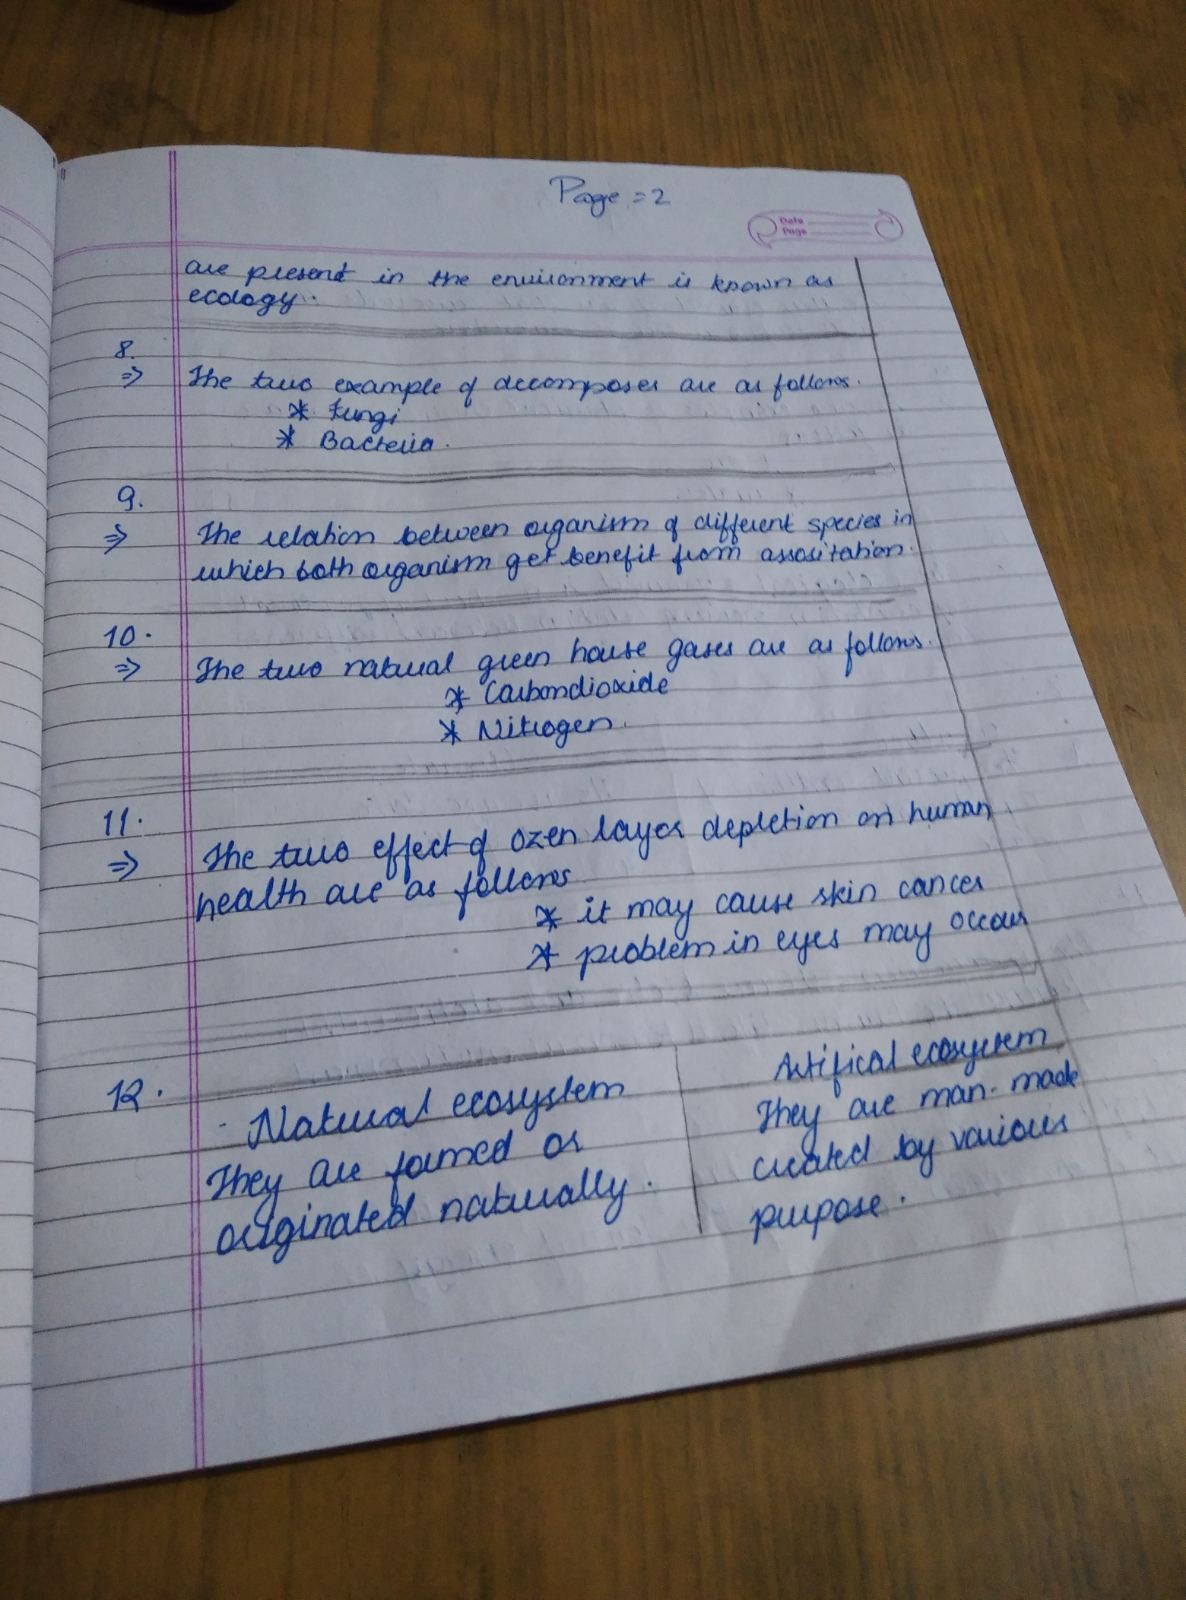 Page = 2
Date
Page
are present in the environment is known as
ecology.
8.
⇒ The two example of decomposer are as follows.
* Fungi
* Bacteria.
9.
⇒ The relation between organism of different species in
which both organism get benefit from assositation.
10.
⇒ The two natural green house gases are as follows.
* Carbondioxide
* Nitrogen.
11.
⇒ The two effect of ozen layer depletion on human
health are as follows
* it may cause skin cancer
* problem in eyes may occur
12.
Natural ecosystem
They are formed or
originated naturally.
Artifical ecosystem
They are man-made
created by various
purpose.